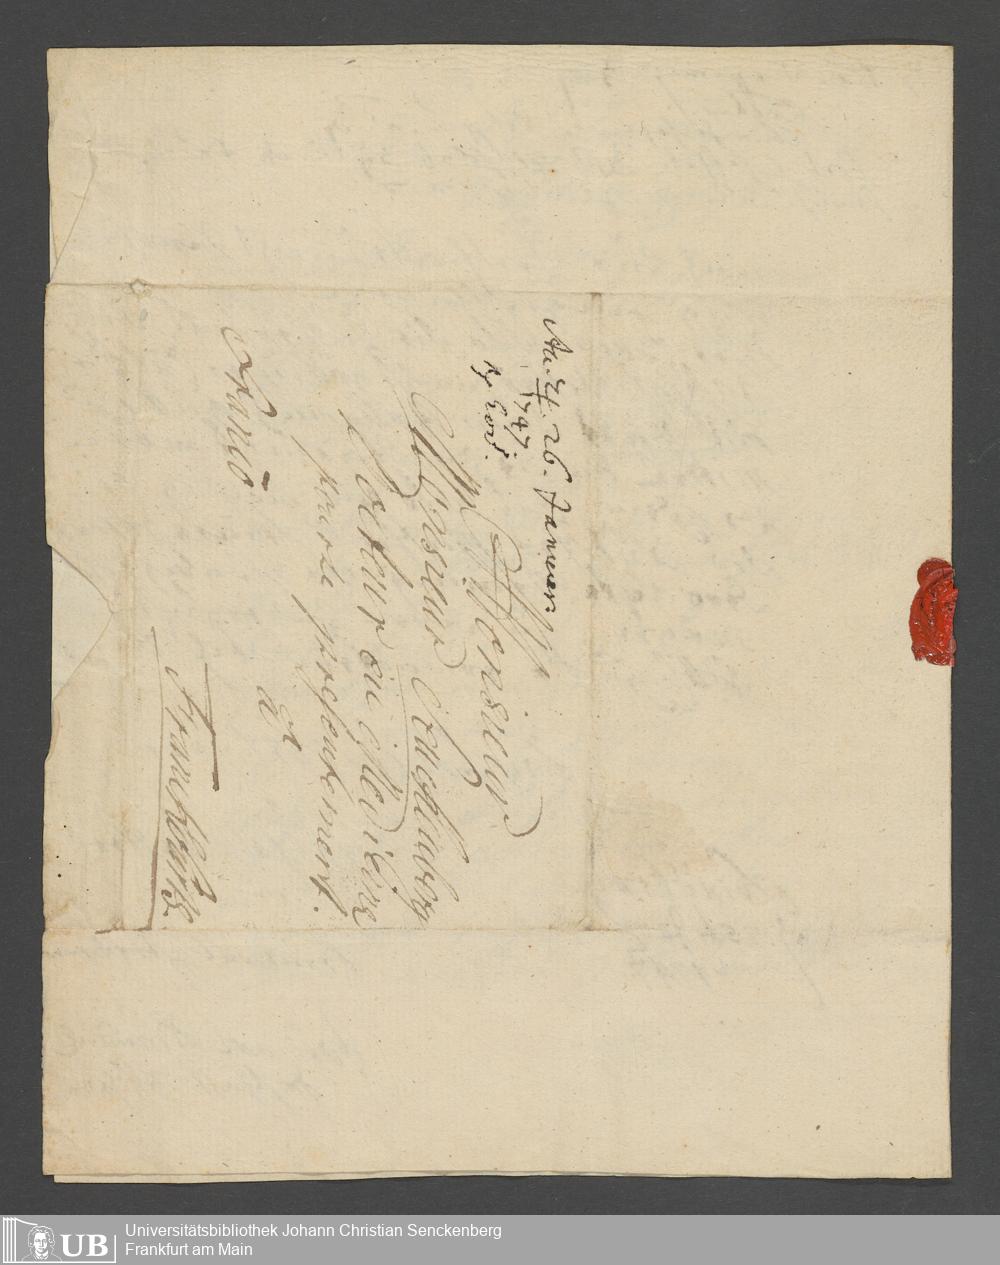 26. Januar.
1747.
A Monsieur
Monsieur Senckenberg
Docteur en Medicine
presentement.
à
Franco
Franckfurth
Universitätsbibliothek Johann Christian Senckenberg
Frankfurt am Main
UB